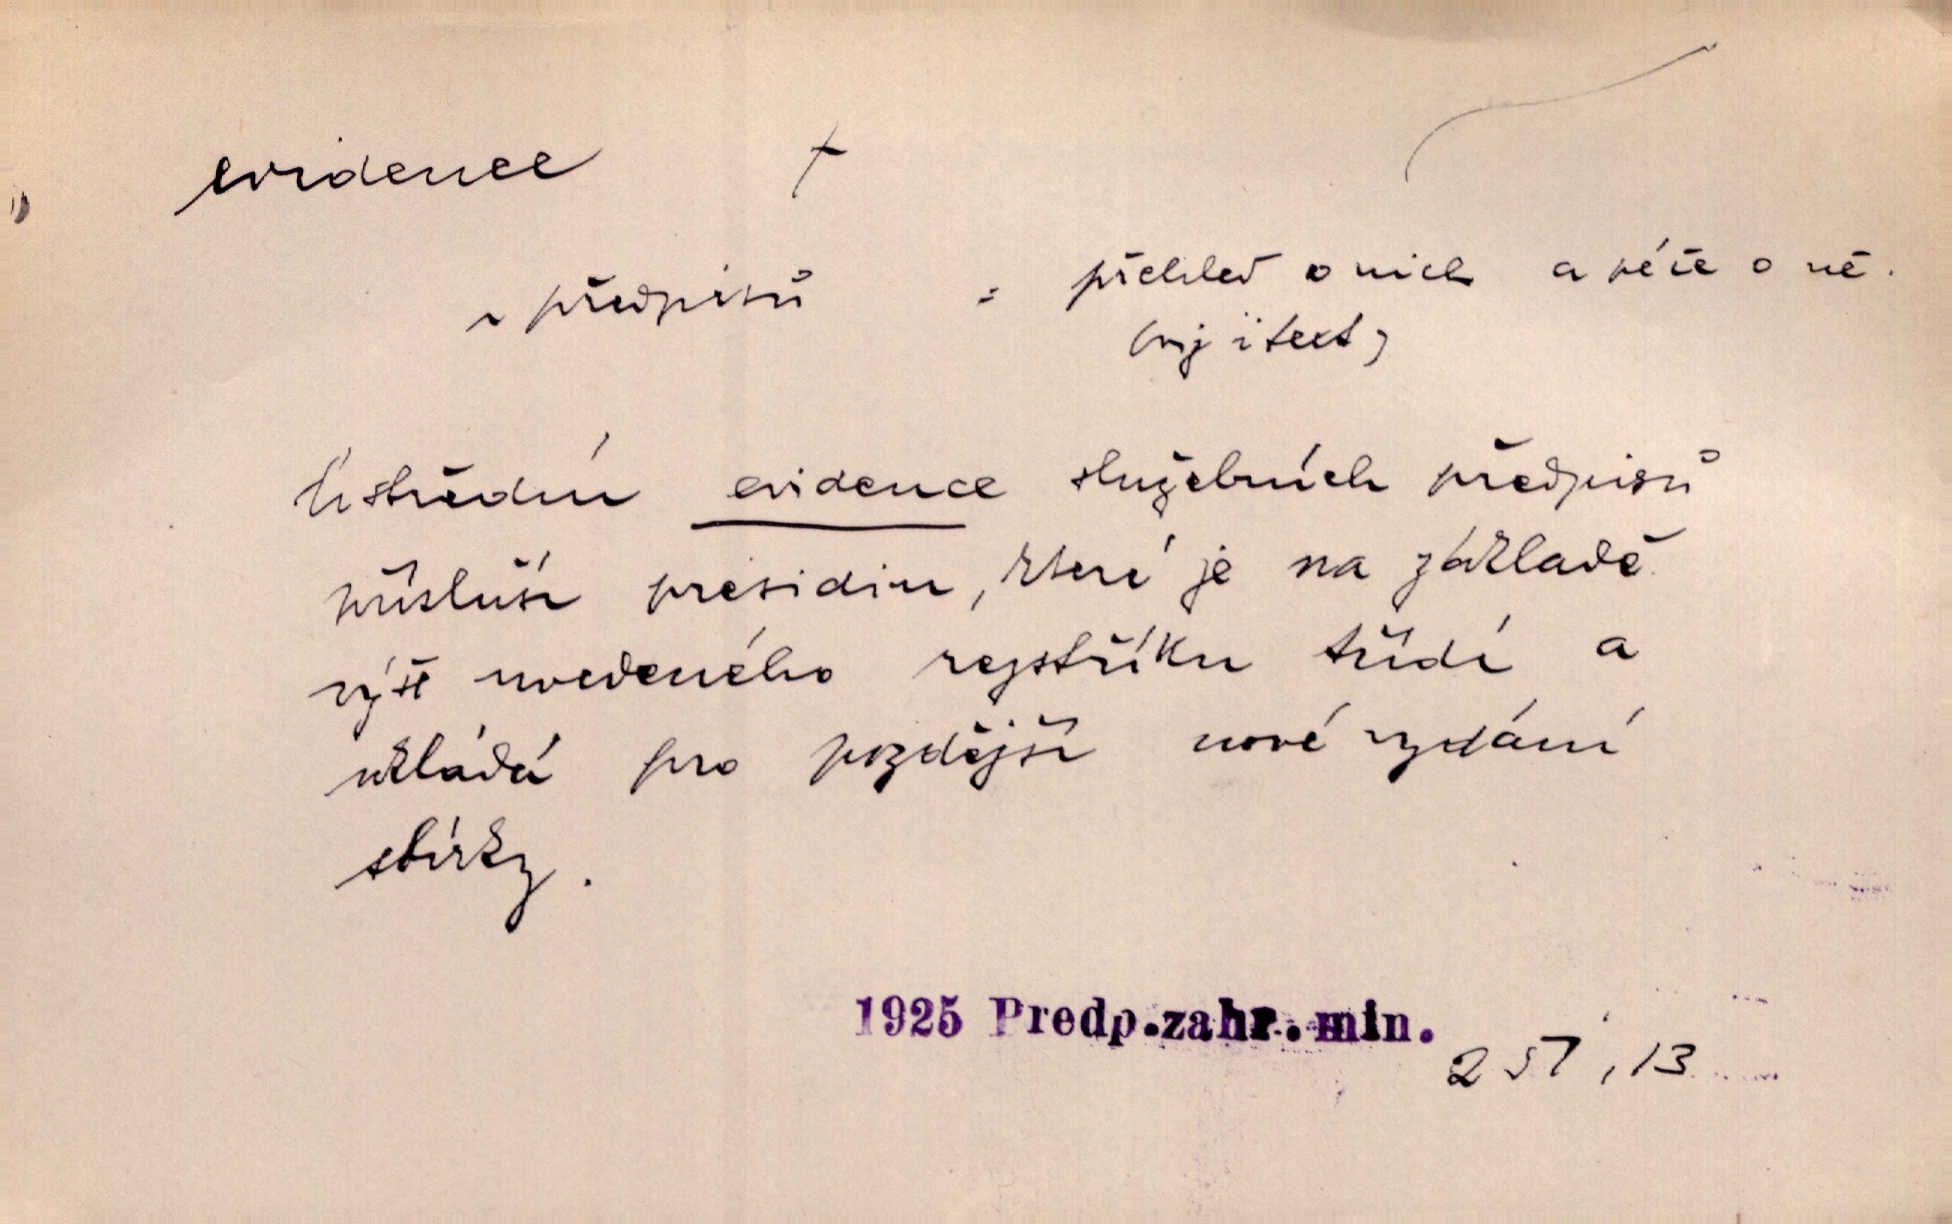 evidence +
~ předpisů = přehled o nich a péče o ně.
(viz i text)
Ústřední evidence služebních předpisů
přísluší presidiu, které je na základě
výše uvedeného rejstříku třídí a
ukládá pro pozdější nové vydání
sbírky.
1925 Predp.zahr.min.
251, 13